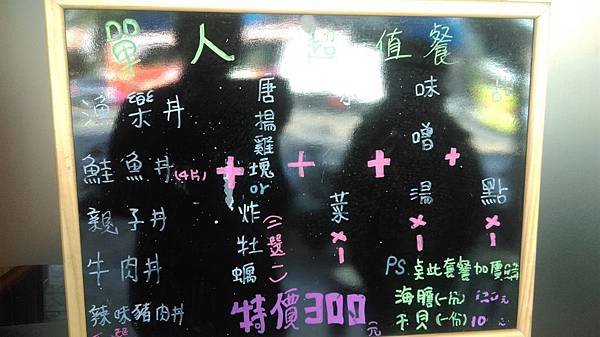 單人超值餐
漁樂丼
鮭魚丼(4片)
親子丼
牛肉丼
辣味豬肉丼
+
唐揚雞塊or炸牡蠣(二選一)
+
菜x1
+
味噌湯x1
+
點x1
特價300元
PS.點此套餐加價購
海膽(一份)120元
干貝(一份)10元